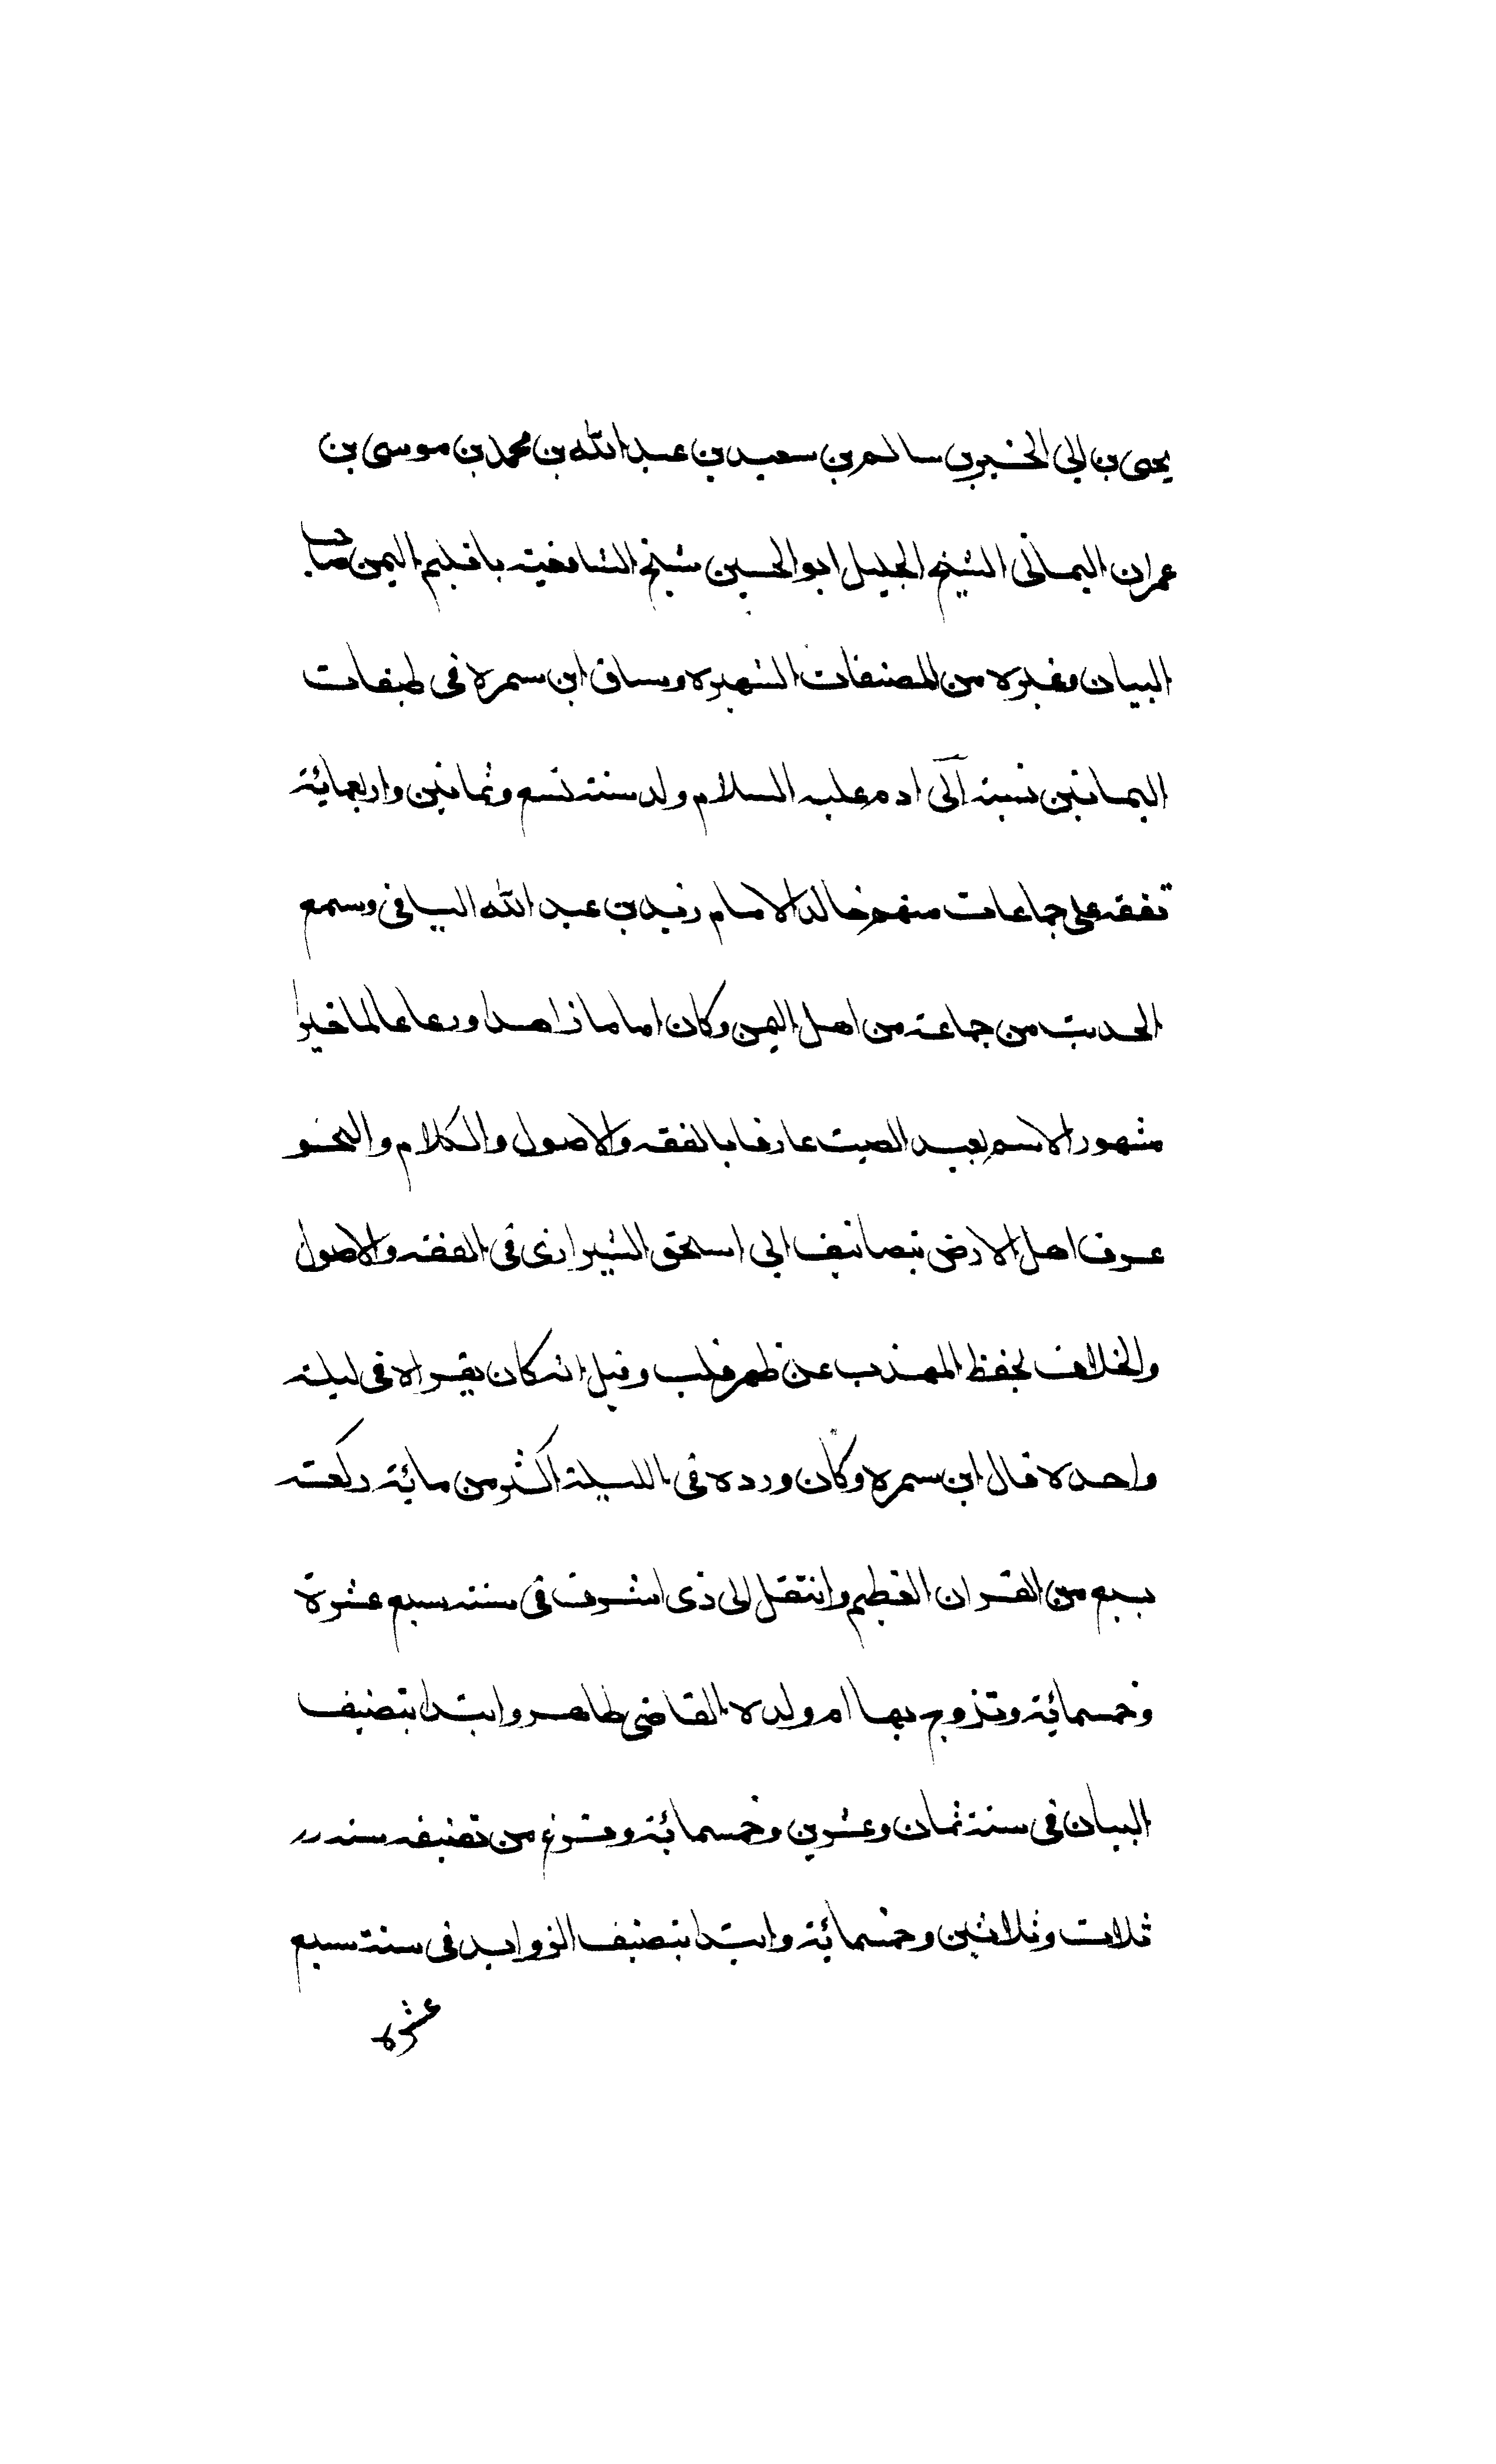 يحيى بن ابي الخير بن سالم بن سعيد بن عبد الله بن محمد بن موسى بن
عمران اليماني الشيخ الجليل ابو الحسين شيخ الشافعية باقليم اليمن صاحب
البيان وغيره من المصنفات الشهيره وساق ابن سمره في طبقات
اليمانين نسبة الى ادم عليه السلام ولد سنة تسع وثمانين واربعمائة
تفقه على جماعات منهم خاله الامام زيد بن عبد الله اليافي وسمع
الحديث من جماعة من اهل اليمن وكان اماما زاهدا ورعا عالما خيرا
مشهور الاسم بعيد الصيت عارفا بالفقه والاصول والكلام والنحو
عرف اهل الارض بتصانيف ابي اسحق الشيرازي في الفقه والاصول
والخلاف يحفظ المهذب عن ظهر قلب وقيل انه كان يقراه في ليلة
واحده قال ابن سمره وكان ورده في الليلة اكثر من مائة ركعة
بسبع من القران العظيم وانتقل الى ذي اشرف في سنة سبع عشرة
وخمسمائة وتزوج بها ام ولده القاضي طاهر وابتدا بتصنيف
البيان في سنة ثمان وعشرين وخمسمائة وفرغ من تصنيفه سنة
ثلاث وثلاثين وخمسمائة وابتدا بتصنيف الزوايد في سنة سبع
عشره